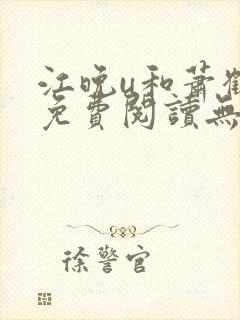 江晚u和蕭
免費閱讀無
徐警官